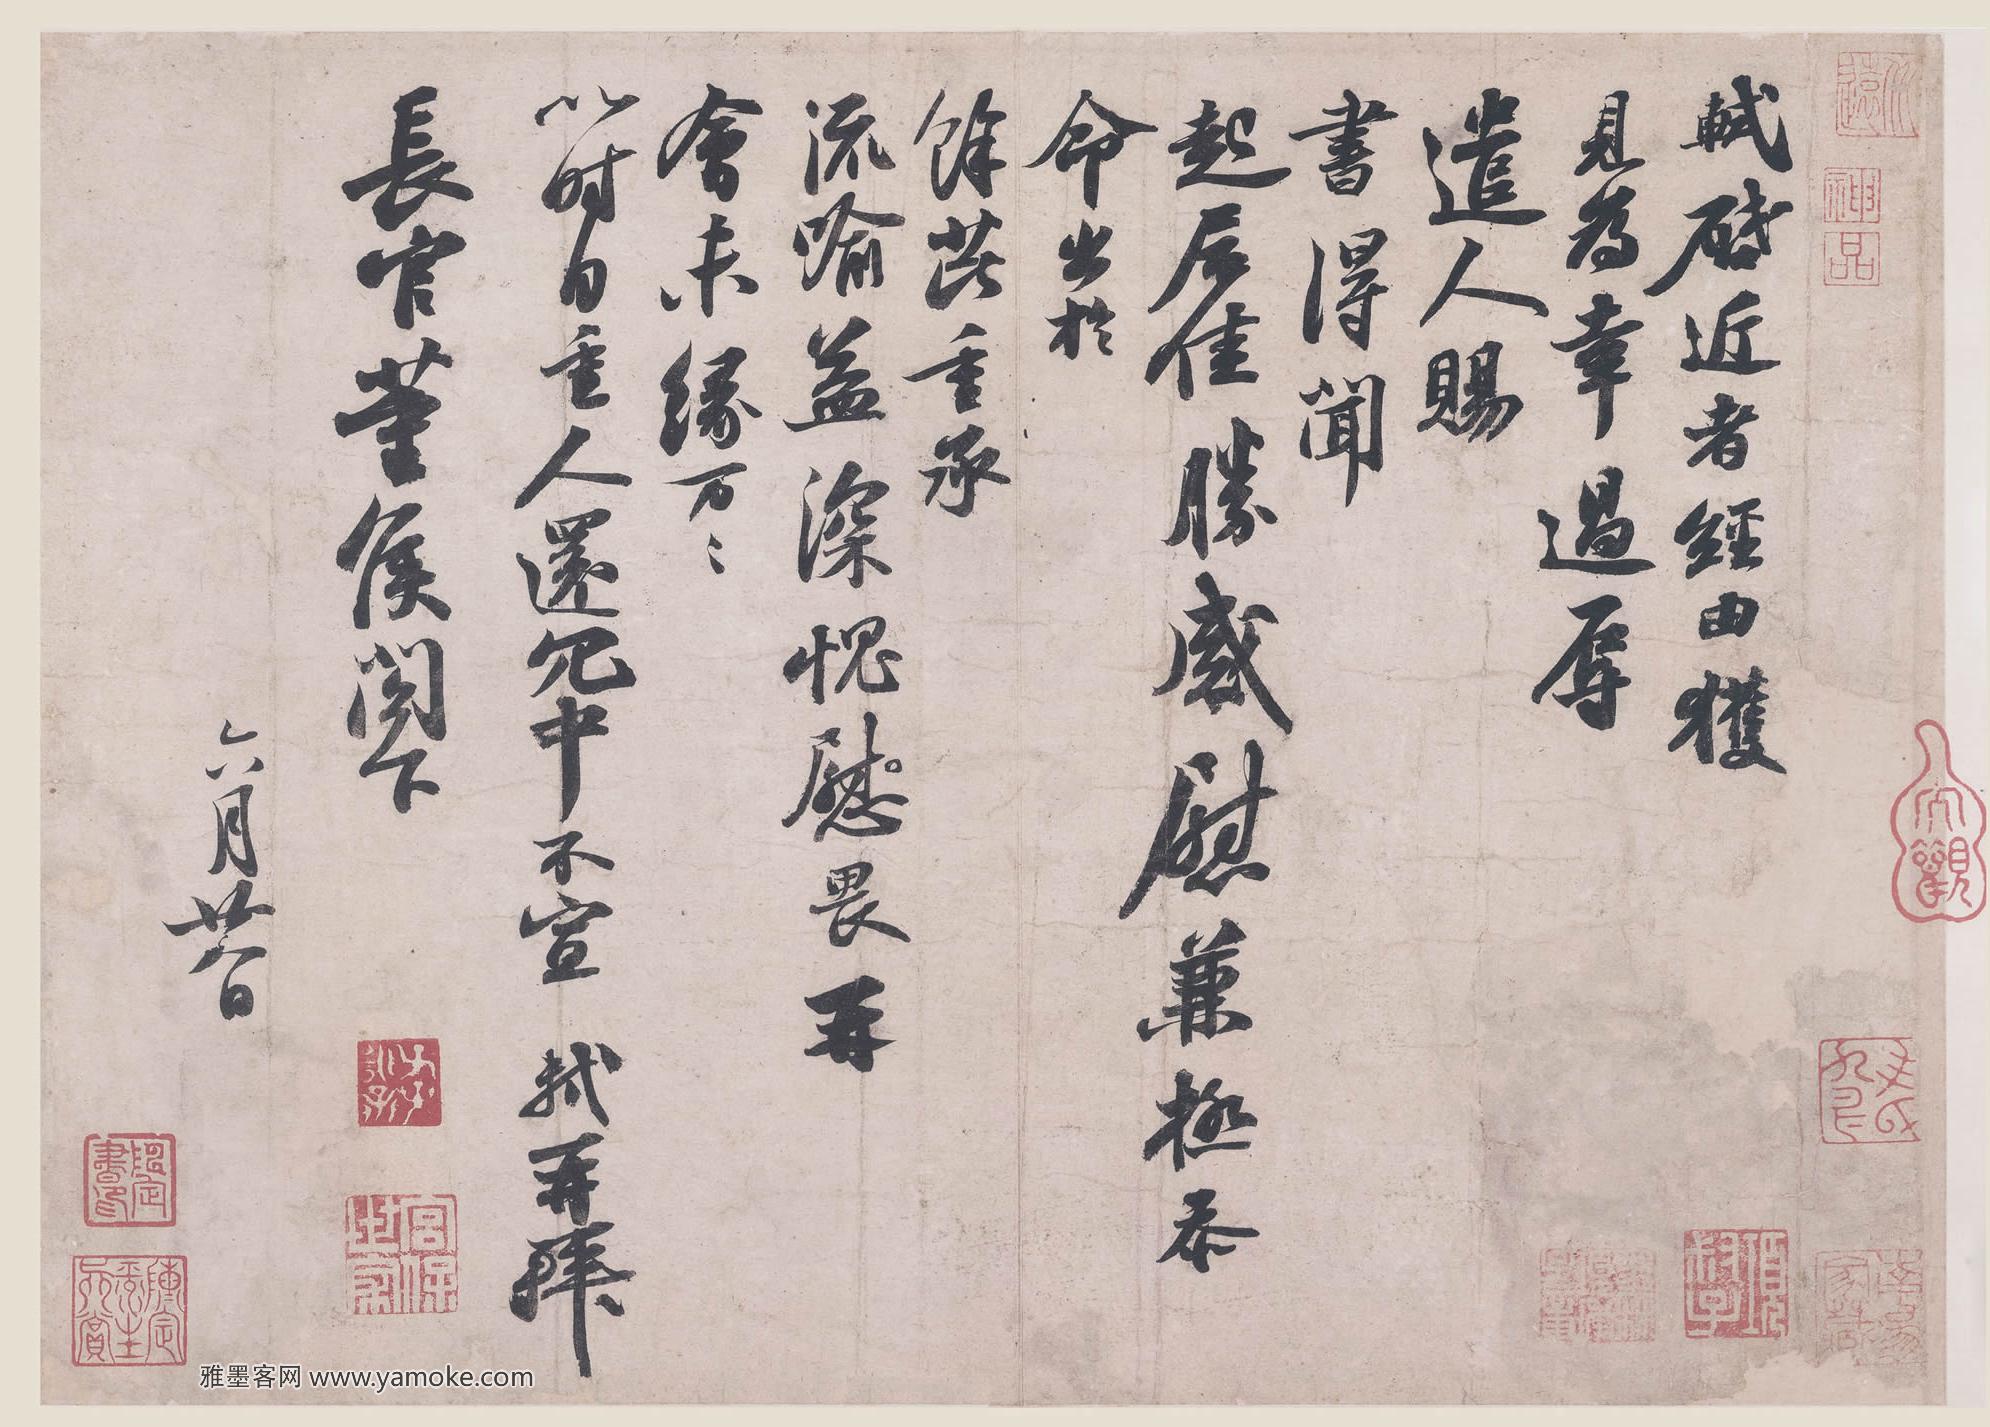 軾啟近者經由獲
見為幸過辱
遣人賜
書得聞
起居佳勝感慰兼極忝
命出於
餘芘重承
流喻益深愧慰畏再
會未緣万〻
以时自重人還冗中不宣 軾再拜
長官董侯閣下
六月廿八日
神品
雅墨客网 www.yamoke.com